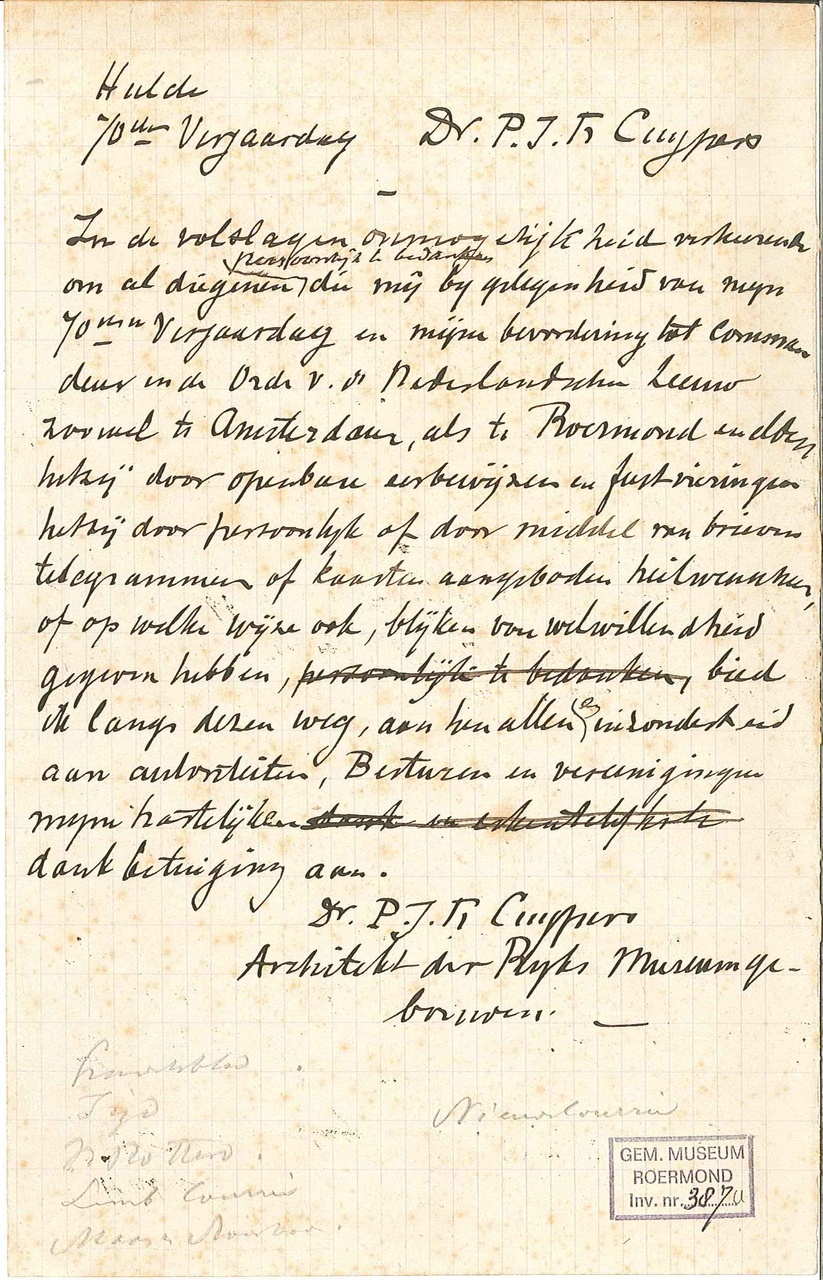 Hulde
70sten Verjaardag Dr. P. J. H. Cuypers
In de volslagen onmogelijkheid verkeerende
persoonlijk te bedanken
om al diegenen die mij by gelegenheid van mijn
70sten Verjaardag en mijne bevordering tot comman
deur in de Orde v. d. Nederlandschen Leeuw
zoowel te Amsterdam, als te Roermond en elders
hetzij door openbare eerbewijzen en feestvieringen
hetzij door persoonlijk of door middel van brieven
telegrammen of kaarten aangeboden heilwenschen,
of op welke wijze ook, blijken van welwillendheid
gegeven hebben, persoonlijk te bedanken, bied
ik langs dezen weg, aan hen allen en inzonderheid
aan autoriteiten, Besturen en vereenigingen
mijne hartelijken dank en erkentelijkste
dankbetuiging aan.
Dr. P. J. H. Cuypers
Architekt der Ryks Museumge-
bouwen.
Tijd
Nieuwe Courrie
Limb Courrie
Maas
GEM. MUSEUM
ROERMOND
Inv. nr. 3870